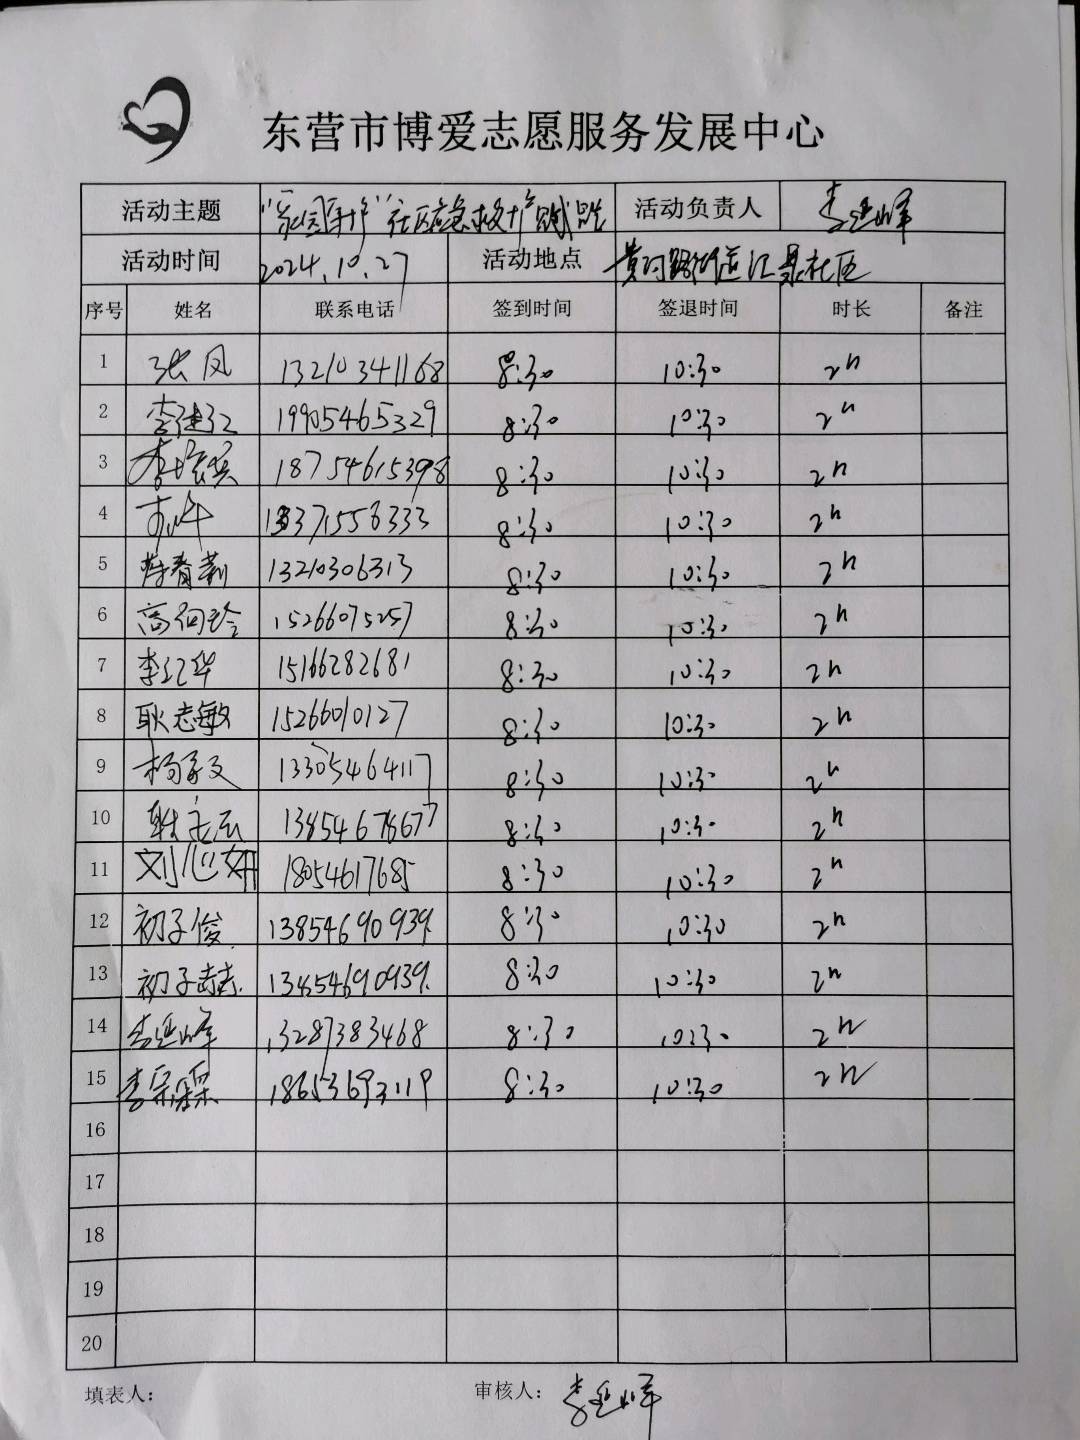 东营市博爱志愿服务发展中心
活动主题 "家园守护"社区应急救护 活动负责人 李延峰
活动时间 2024.10.27 活动地点 黄河路街道汇景社区
序号 姓名 联系电话 签到时间 签退时间 时长 备注
1 张凤 13210341168 8:30 10:30 2h
2 李建江 19905465329 8:30 10:30 2h
3 18754615398 8:30 10:30 2h
4 13371556333 8:30 10:30 2h
5 13210306313 8:30 10:30 2h
6 15266075257 8:30 10:30 2h
7 李红华 15166282681 8:30 10:30 2h
8 耿志敏 15266010127 8:30 10:30 2h
9 13305464117 8:30 10:30 2h
10 8:30 10:30 2h
11 刘心妍 18054617685 8:30 10:30 2h
12 初子俊 13854690939. 8:30 10:30 2h
13 初子喆. 13854690939. 8:30 10:30 2h
14 李延峰 13287383468 8:30 10:30 2h
15 18653693119 8:30 10:30 2h
16
17
18
19
20
填表人: 审核人: 李延峰